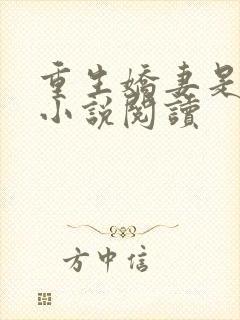 重生嬌妻是
小說閱讀
方中信